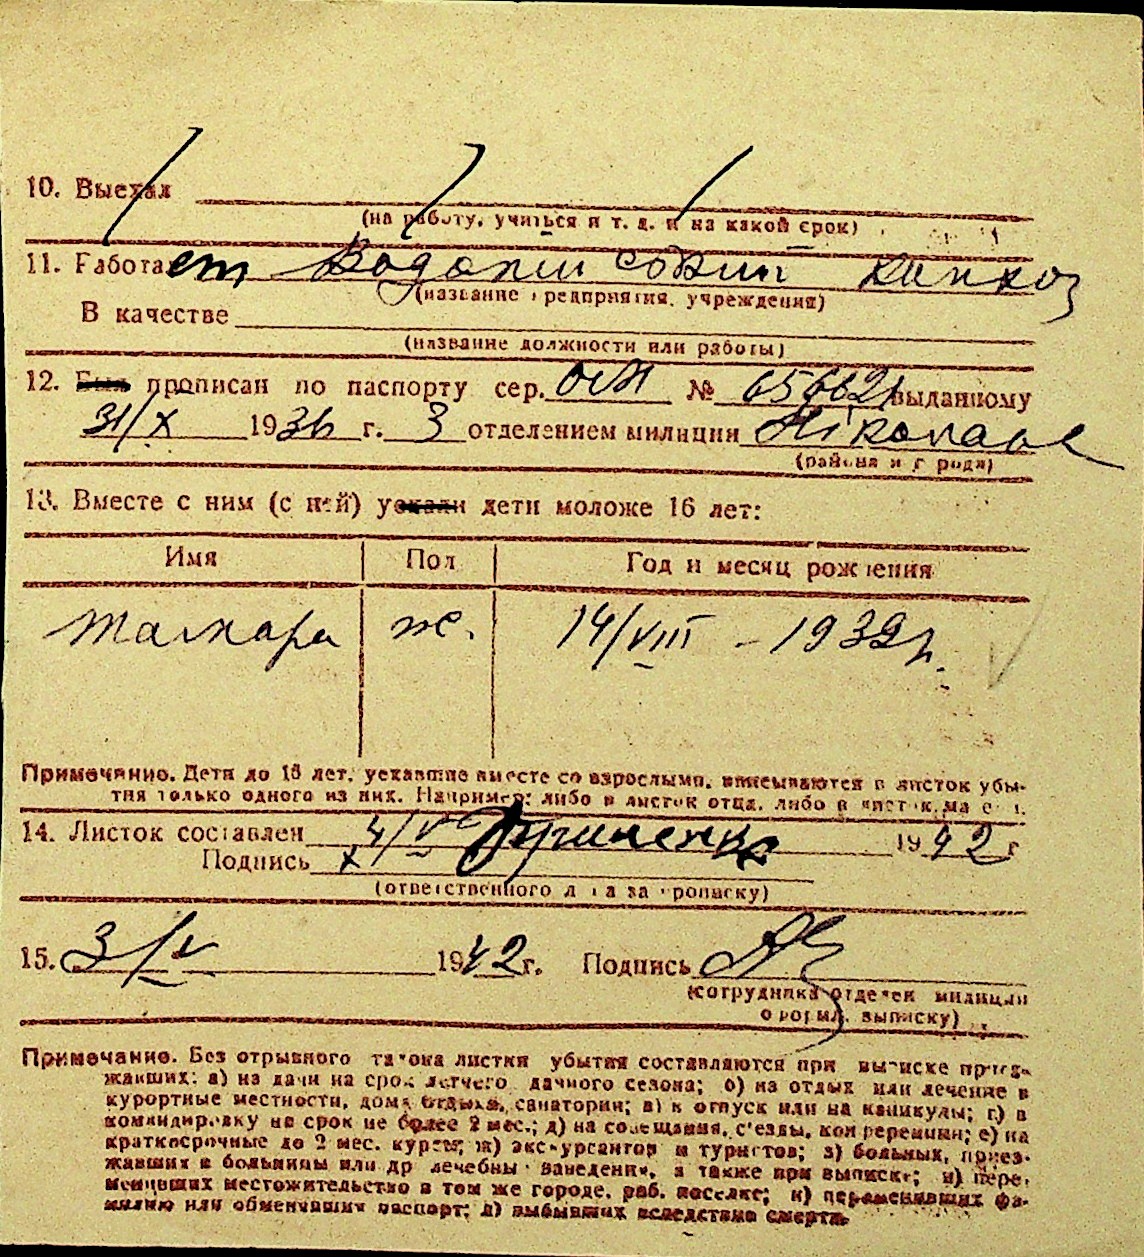 10. Выехал
(на работу, учиться и т. д. и на какой срок)
11. Работает
(название предприятия, учреждения)
В качестве
(название должности или работы)
12. Был прописан по паспорту сер. № выданному
31/X 1936 г. 3 отделением милиции
(района и города)
13. Вместе с ним (с ней) уехали дети моложе 16 лет:
Имя Пол Год и месяц рождения
Тамара ж. 14/VIII - 1939 г.
Примечание. Дети до 16 лет, уехавшие вместе со взрослыми, вписываются в листок убы-
тия только одного из них. Например: либо в листок отца, либо в листок матери.
14. Листок составлен 4/V 1942 г
Подпись
(ответственного лица за прописку)
15. 3/V 1942 г. Подпись
(сотрудника отделен милиции
оформл. выписку)
Примечание. Без отрывного талона листки убытия составляются при выписке приез-
жавших: а) на дачи на срок летнего дачного сезона; б) на отдых или лечение в
курортные местности, дома отдыха, санатории; в) в отпуск или на каникулы; г) в
командировку на срок не более 2 мес.; д) на совещания, с'езды, конференции; е) на
краткосрочные до 2 мес. курсы; ж) экскурсантов и туристов; з) больных, приез-
жавших в больницы или др лечебны заведения, а также при выписке; и) пере-
менивших местожительство в том же городе, раб. поселке; к) переменивших фа-
милию или обменявших паспорт; л) выбывших вследствие смерти.